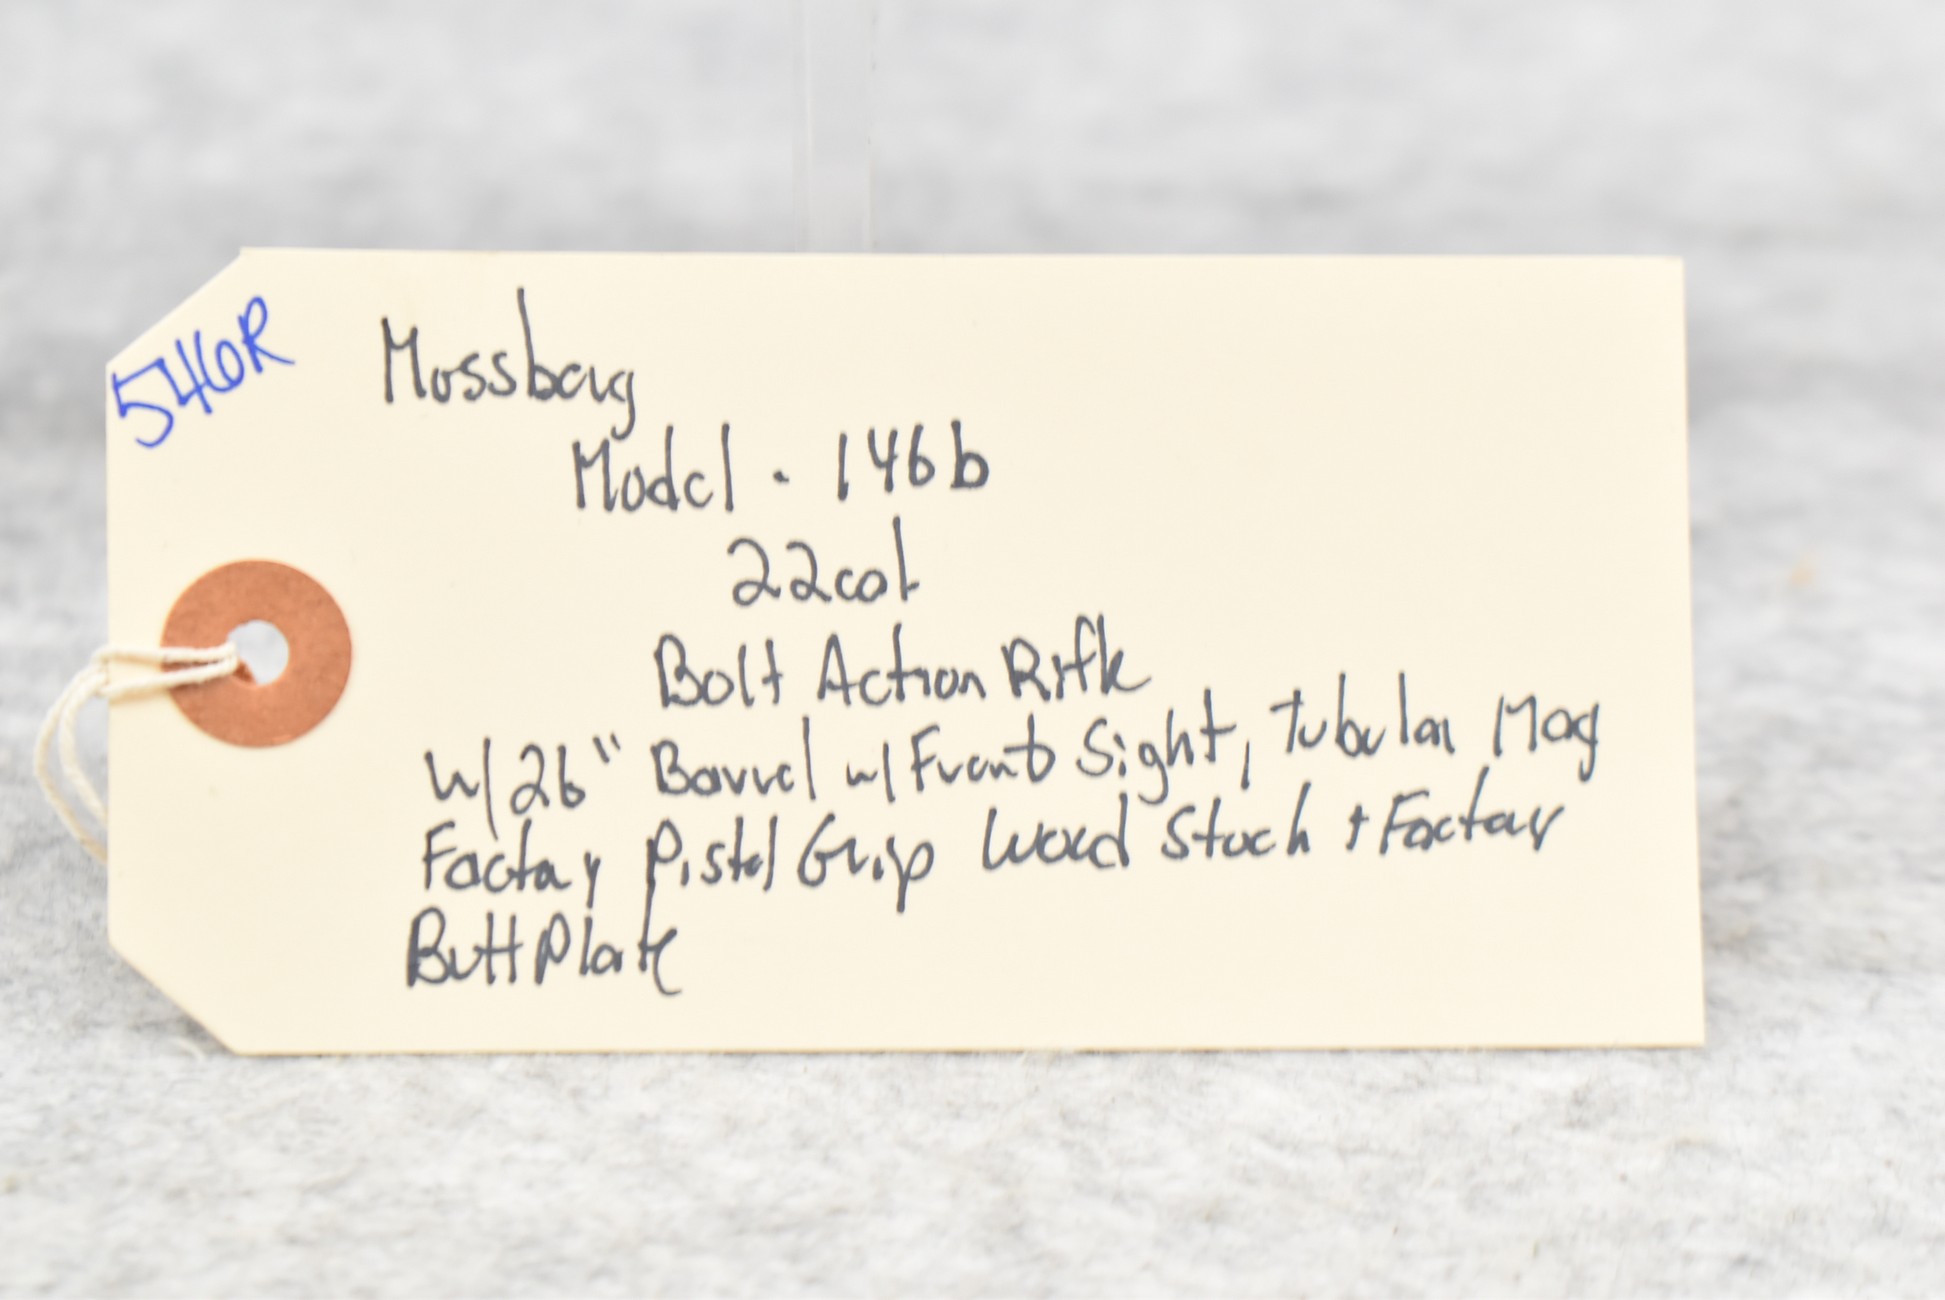 546R
Mossberg
Model - 146b
22cal
Bolt Action Rifle
w/26" Barrel w/ Front Sight, Tubular Mag
Factory Pistol Grip Wood Stock + Factory
Butt Plate